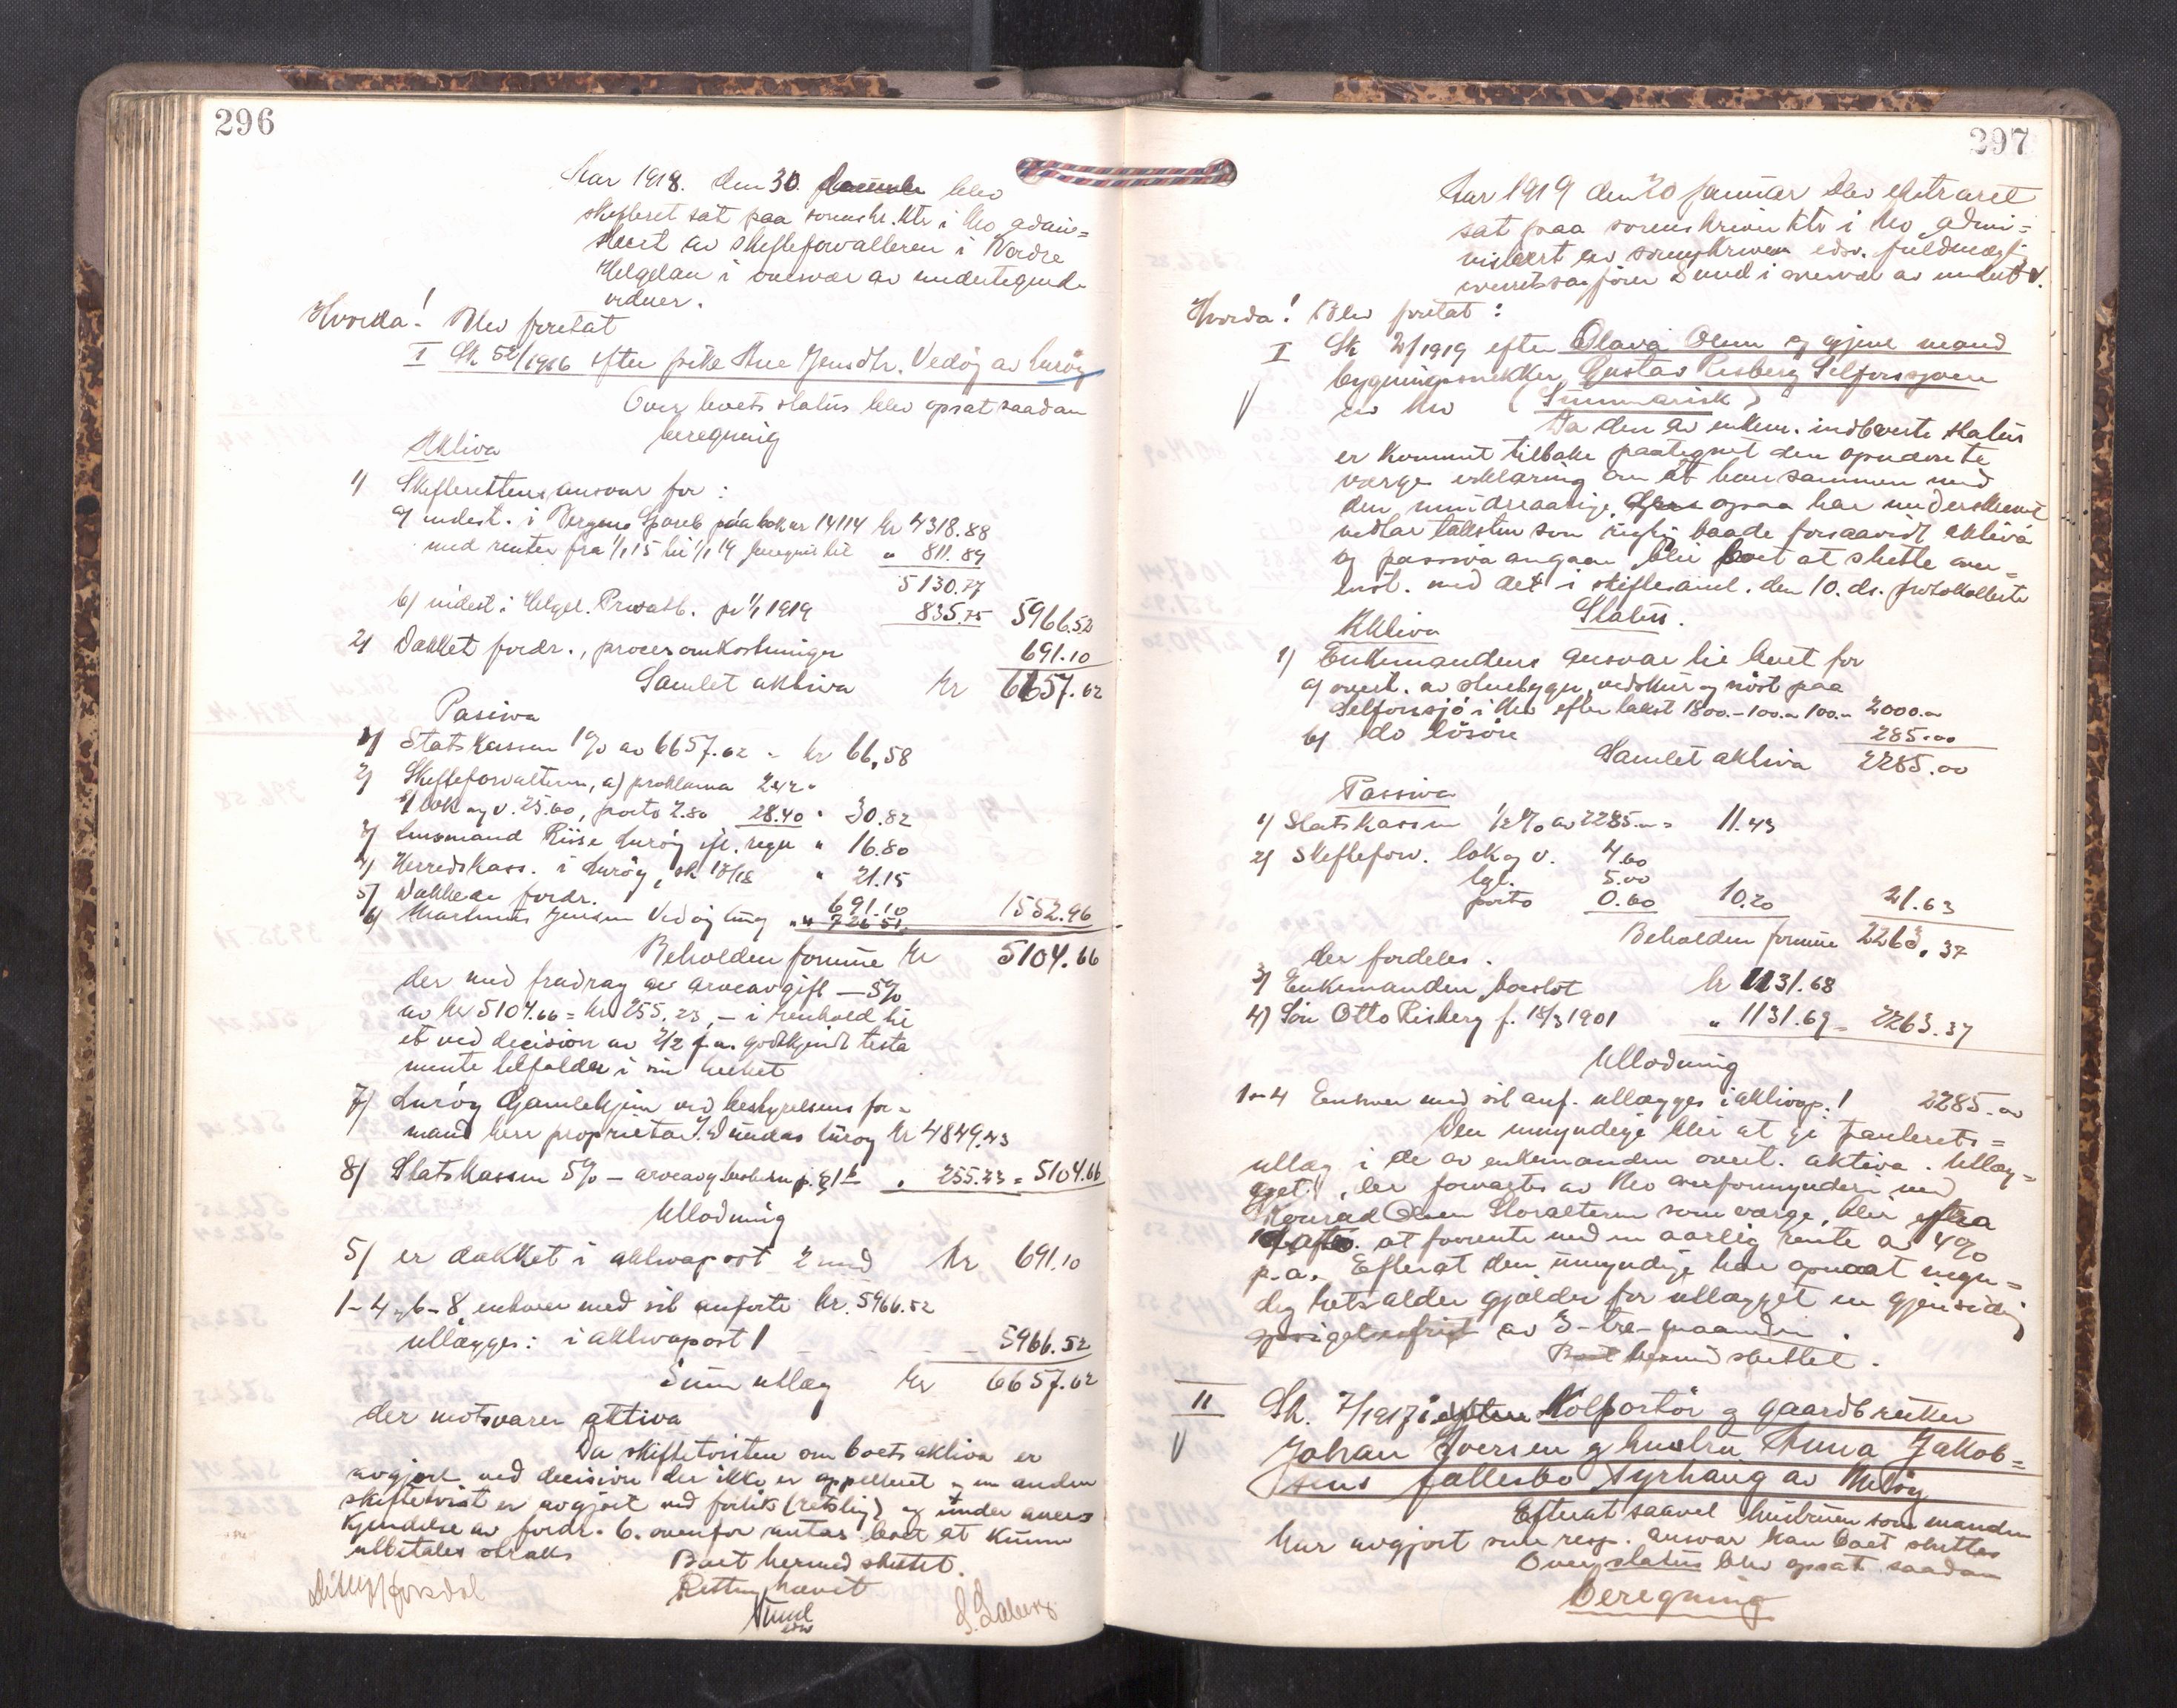 296
Aar 1918. den 30. december blev
skifteret sat paa sorenskr. ktr i Mo admini=
strert av skifteforvalteren i Nordre
Helgelan i overvær av undertegnede
vidner.
Hvorda! Blev foretat
I Sk. 52/1916 efter pike Ane Jensdtr. Vedøy av Lurøy
Over boets status blev opsat saadan
beregning
Aktiva
1) Skifterettens ansvar for:
a) indest. i Bergens Spareb paa bok nr 14114 kr 4318.88
med renter fra 1/1 15 til 1/1 19 " 811.89
5130.77
b) indest i Helgel. Privatb. pr 1/1 1919 835.75 5966.52
2) Dækket fordr., procesomkostninger 691.10
Samlet aktiva kr 6657.62
Pasiva
1) Statskassen 1% av 6657.62 = kr 66,58
2) Skifteforvalteren, a) proklama 2.42
b) lok og v. 25.60, porto 2.80 28.40 " 30.82
3) Lensmand Riise Lurøy ifl. regn " 16.80
4) Herredskass. i Lurøy, sk 18/18 " 21.15
5) Dækkede fordr. 691.10
6) Martinus Jensen Vedøy " 726.51 1552.96
Beholden formue kr 5104.66
der med fradrag av arveavgift — 5%
av kr 5104.66 = kr 255.23, — i henhold til
et ved decision av 2/2 f.a. godkjendt testa
mente tilfalder i sin helhet
7) Lurøy Gamlehjem ved bestyrelsens for=
mand herr proprietær I. Dundas Lurøy kr 4849.43
8) Statskassen 5% — arveavg " 255.23 = 5104.66
Utlodning
5) er dækket i aktivapost 2 med kr 691.10
1-4, 6-8 enhver med sit anførte kr. 5966.52
utlægges: i aktivapost 1 5966.52
Sum utlæg kr 6657.62
der motsvarer aktiva
Da skiftetvisten om boets aktiva er
avgjort ved decision der ikke er appelleret og en anden
skiftetvist er avgjort ved forlik (retslig) og under aner=
kjendelse av fordr. 6. ovenfor antas boet at kunne
utbetales straks Boet hermed sluttet.
Retten hævet
Sund
edsv
297
Aar 1919 den 20 januar blev ekstraret
sat paa sorenskriver ktr i Mo admi=
nistrert av sorenskriveren edsv. fuldmægtig
overretssakfører Sund i overvær av undert v.
Hvorda! Blev foretat:
I Sk 2/1919 efter Olava Olsen og gjenl mand
bygningssnekker Gustav Risberg Selforssjoen
av Mo (Summarisk)
Da den av enkem. indleverte status
er kommet tilbake paategnet den opnævnte
værges erklæring om at han sammen med
den mindreaarige ogsaa har underskrevet
vedtar taksten som rigtig baade forsaavidt aktiva
og passiva angaar blir boet at slutte over=
enst. med det i skiftesaml. den 10. ds. protokollerte
Status.
Aktiva
1) Enkemandens ansvar til boet for
a) overt. av stuebygn, vedskur og nøst paa
Selforssjø i Mo efter takst 1800.-100.- 100.- 2000.-
b) do løsøre 285.00
Samlet aktiva 2285.00
Passiva
1) Statskassen 1/2% av 2285.- = 11.43
2) Skifteforv. lok og v. 4.60
tgl. 5.00
porto 0.60 10.20 21.63
Beholden formue 2263.37
der fordeles.
3) Enkemanden boeslot kr 1131.68
4) Søn Otto Risberg f. 18/3 1901 " 1131.69 = 2263.37
Utlodning
1-4 Enhver med sit anf. utlægges i aktivap. 1 2285.00
Den umyndige blir at gi panterets=
utlæg i de av enkemanden overt. aktiva. Utlæg=
get, der forvaltes av Mo overformynderi med
Konrad Olsen Storalteren som værge, blir efter
at forrente med en aarlig rente av 4%
p.a. Efterat den umyndige har opnaat myn=
dighetsalder gjælder for utlægget en gjensidig
opsigelsesfrist av 3-tre-maaneder.
Boet hermed sluttet.
II Sk. 7/1917 i Kolportør og gaardbruker
Johan Iversen og hustru Anna Jakob=
sens fællesbo Nyrhaug av Meløy
Efterat saavel hustruen som manden
har avgjort sine resp. ansvar kan boet sluttes
Over status blev opsat saadan
beregning